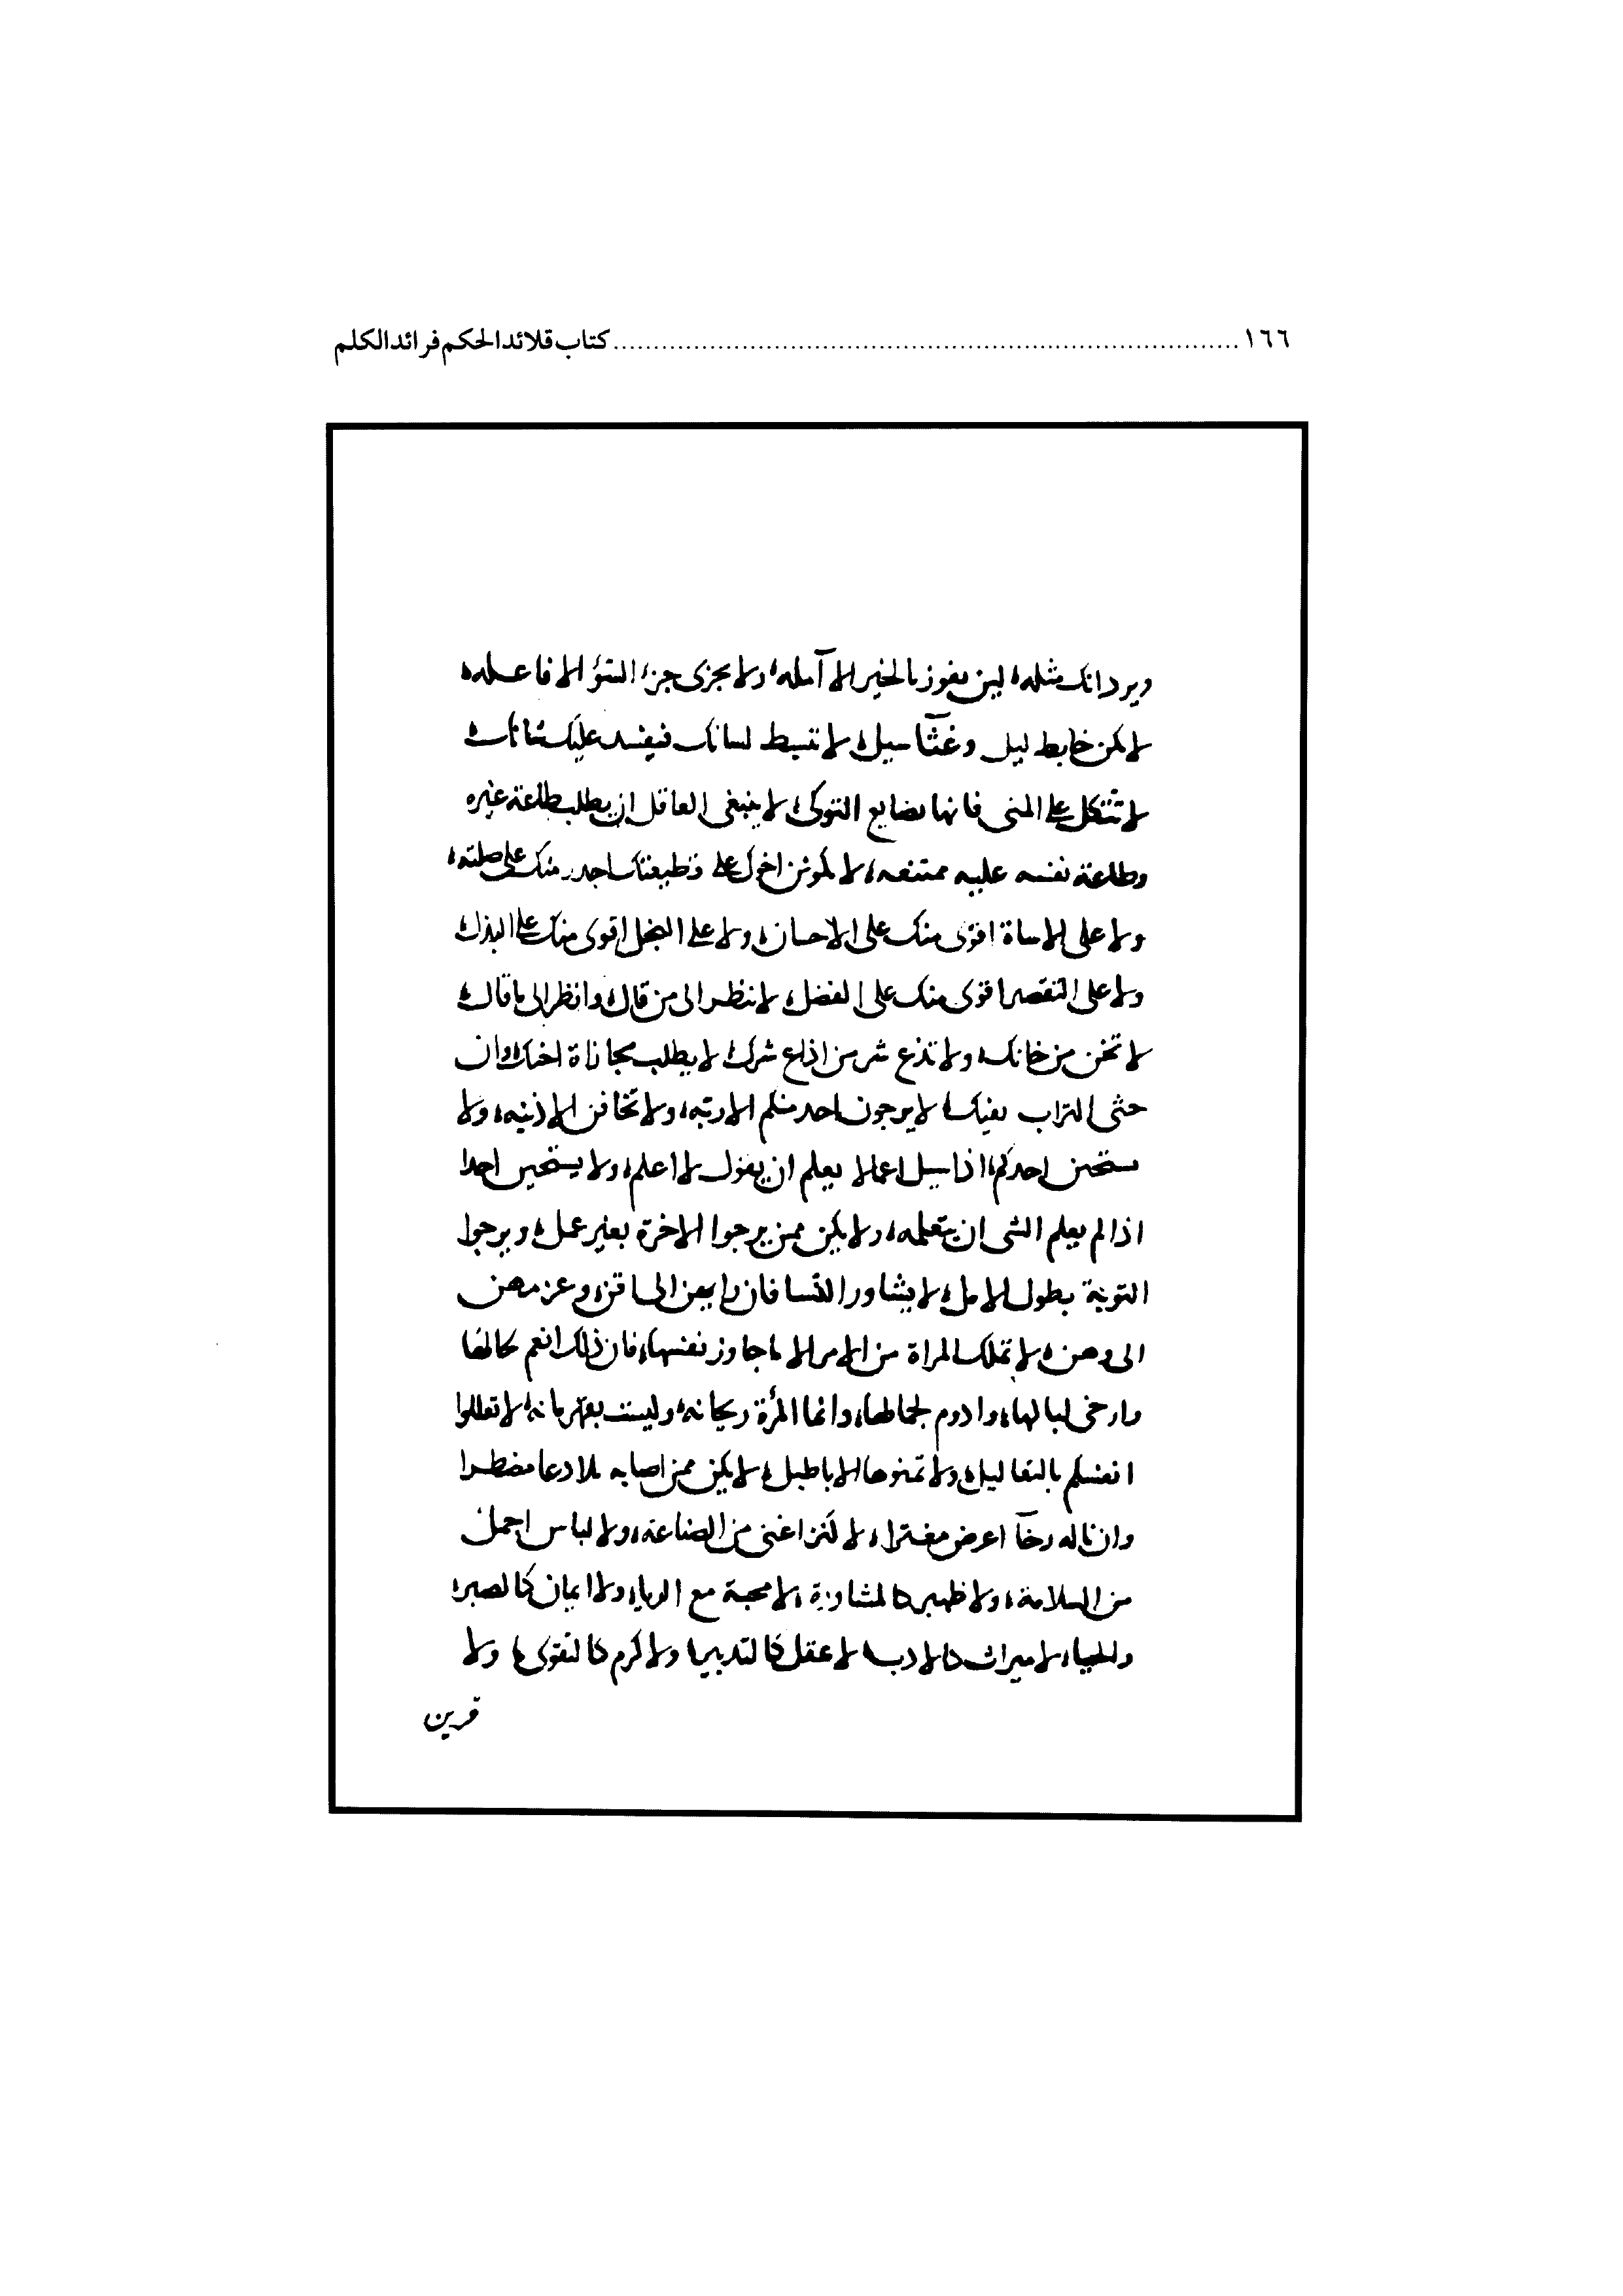 ١٦٦ ........ كتاب قلائد الحكم فرائد الكلم
ويرد انك مثله، لن يفوز بالخير الا آمله، ولا يجزى جزء السؤ الا فاعله،
لا تكن خابط ليل وغثآ سيل، لا تبسط لسانك فيفسد عليك شانك
لا تتكل على المنى فانها بضايع النوكى، لا ينبغى العاقل ان يطلب طاعة غيره
وطاعة نفسه عليه ممتنعه، لا يكونن اخوك على قطيعتك اجدر منك على صلته،
ولا على الاساة اقوى منك على الاحسان، ولا على البخل اقوى منك على البذل
ولا على التقصير اقوى منك على الفضل، لا تنظر الى من قال، وانظر الى ما قال،
لا تخن من خانك، ولا تذع سر من اذاع سرك، لا يطلب مجازاة اخيك، وان
حثى التراب بفيك، لا يرجون احد منكم الا ربه، ولا تخافن الا ذنبه، ولا
ستحين احدكم، اذا سيل عما لا يعلم ان يقول لا اعلم، ولا يستحين احدا
اذا لم يعلم الشى ان يتعلمه، ولا يكن ممن يرجوا الاخرة بغير عمل، ويرجوا
التوبة بطول الامل، لا يشاور النسا فان رايهن الى افن، وعزمهن
الى وهن، لا تملك المراة من الامر الا ما جاوز نفسها، فان ذلك انعم لحالها
وارخى لبالها، وادوم لجمالها، وانما المرأة ريحانه، وليست بقهرمانه، لا تعللوا
انفسكم بالتعاليل، ولا تمنوها الاباطيل، لا يكن ممن اصابه بلا دعا مضطرا
وان ناله رخآ اعرض مغترا، لا كنز اغنى من القناعه، ولا لباس اجمل
من السلامة، ولا ظهير كالمشاورة، لا محبة مع الريا، ولا ايمان كالصبر،
والحيا، لا ميراث كالادب، لا عقل كالتدبير، ولا كرم كالتقوى، ولا
قرين